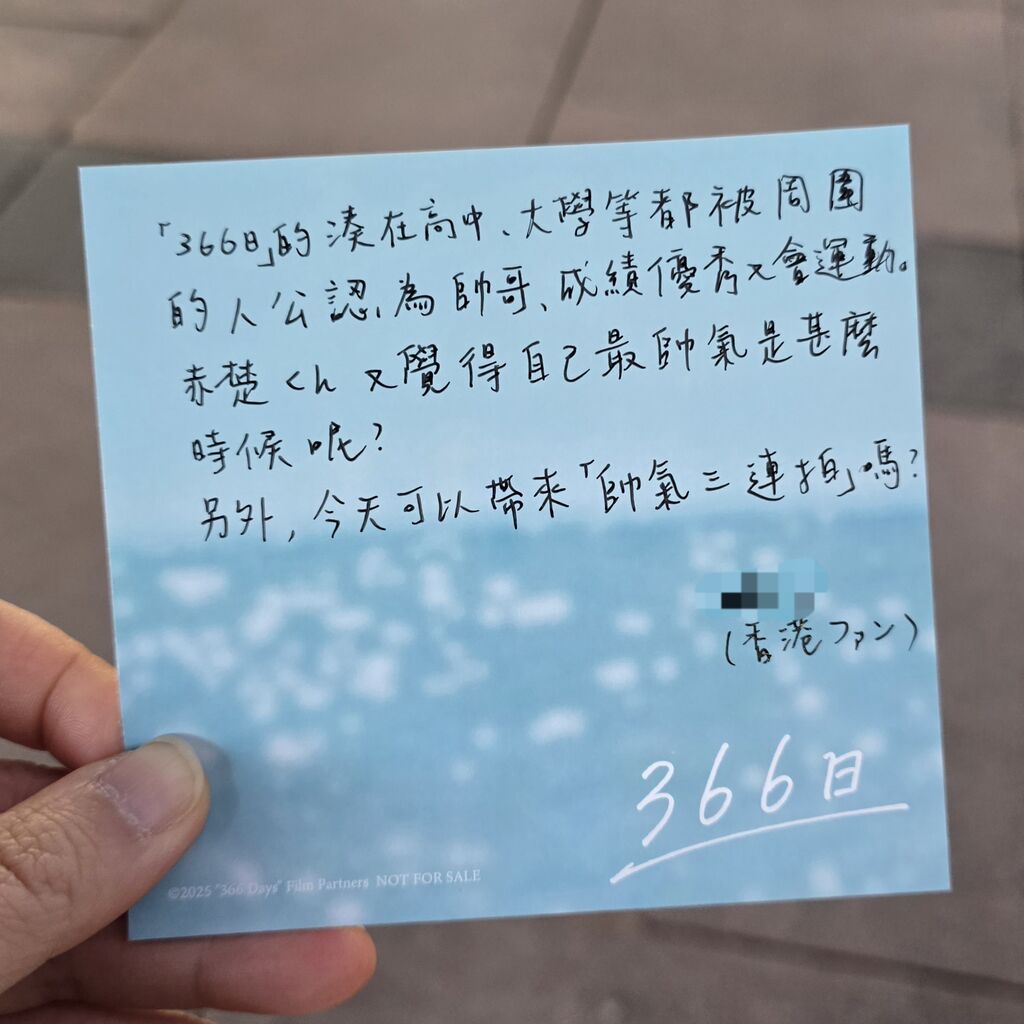 「366日」的湊在高中、大學等都被周圍
的人公認為帥哥、成績優秀又會運動。
赤楚くん又覺得自己最帥氣是甚麼
時候呢?
另外,今天可以帶來「帥氣三連拍」嗎?
(香港ファン)
366日
©2025 "366 Days" Film Partners NOT FOR SALE